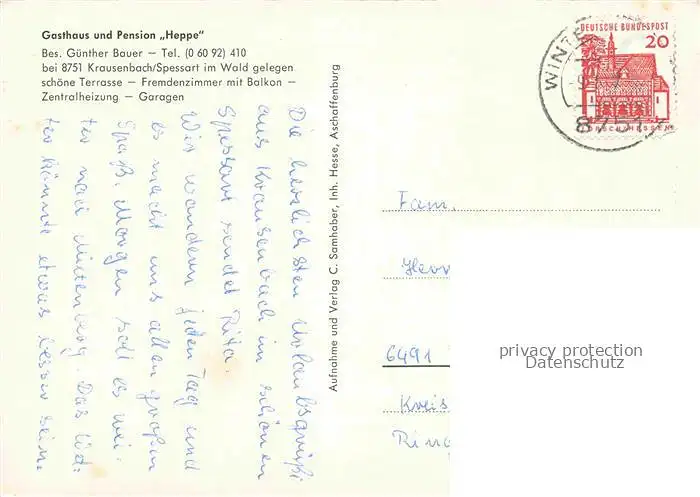 Gasthaus und Pension „Heppe"
Bes. Günther Bauer — Tel. (0 60 92) 410
bei 8751 Krausenbach/Spessart im Wald gelegen
schöne Terrasse — Fremdenzimmer mit Balkon —
Zentralheizung — Garagen
Die herzlichsten Urlaubsgrüße
aus Krausenbach im schönen
Spessart sendet Rita.
Wir wandern jeden Tag und
es macht uns allen großen
Spaß. Morgen soll es wei-
ter nach Miltenberg. Das Wet-
ter könnte etwas besser sein.
Aufnahme und Verlag C. Samhaber, Inh. Hesse, Aschaffenburg
DEUTSCHE BUNDESPOST
20
LORSCH/HESSEN
WINTE
8751
Fam.
6491
Kreis
privacy protection
Datenschutz